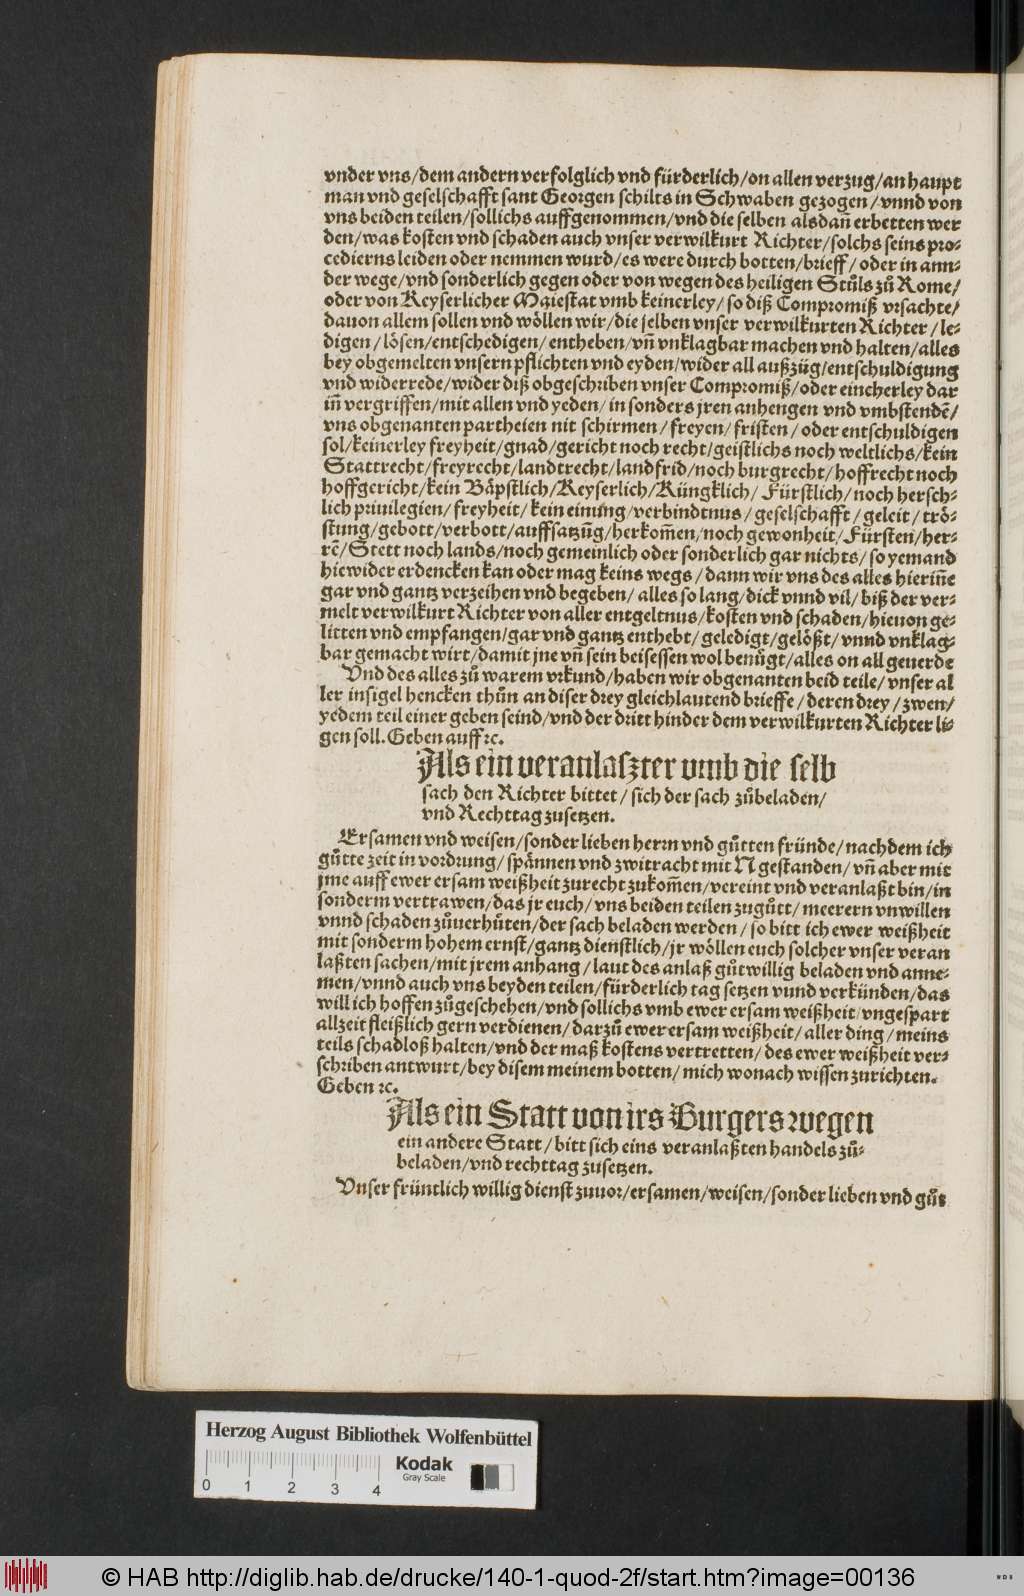 vnder vns/dem andern verfolglich vnd fürderlich/on allen verzug/an haupt
man vnd geselschafft sant Georgen schilts in Schwaben gezogen/vnnd von
vns beiden teilen/sollichs auffgenommen/vnd die selben alsdañ erbetten wer
den/was kosten vnd schaden auch vnser verwilkurt Richter/solchs seins pro-
cedierns leiden oder nemmen wurd/es were durch botten/brieff/oder in ann-
der wege/vnd sonderlich gegen oder von wegen des heiligen Stůls zů Rome/
oder von Keyserlicher Maiestat vmb keinerley/so diß Compromiß vrsachte/
dauon allem sollen vnd wöllen wir/die jelben vnser verwilkurten Richter/le-
digen/lösen/entschedigen/entheben/vñ vnklagbar machen vnd halten/alles
bey obgemelten vnsern pflichten vnd eyden/wider all außzüg/entschuldigung
vnd widerrede/wider diß obgeschriben vnser Compromiß/oder eincherley dar
iñ vergriffen/mit allen vnd yeden/in sonders jren anhengen vnd vmbstendẽ/
vns obgenanten partheien nit schirmen/freyen/fristen/oder entschuldigen
sol/keinerley freyheit/gnad/gericht noch recht/geistlichs noch weltlichs/kein
Stattrecht/freyrecht/landtrecht/landfrid/noch burgrecht/hoffrecht noch
hoffgericht/kein Bäpstlich/Keyserlich/Küngklich/Fürstlich/noch hersch-
lich priuilegien/freyheit/kein einung/verbindtnus/geselschafft/geleit/trö-
stung/gebott/verbott/auffsatzũg/herkom̃en/noch gewonheit/Fürsten/her-
rẽ/Stett noch lands/noch gemeinlich oder sonderlich gar nichts/so yemand
hiewider erdencken kan oder mag keins wegs/dann wir vns des alles hieriñe
gar vnd gantz verzeihen vnd begeben/alles so lang/dick vnnd vil/biß der ver-
melt verwilkurt Richter von aller entgeltnus/kosten vnd schaden/hieuon ge-
litten vnd empfangen/gar vnd gantz enthebt/geledigt/gelößt/vnnd vnklag-
bar gemacht wirt/damit jne vñ sein beisessen wol benügt/alles on all geuerde
Vnd des alles zů warem vrkund/haben wir obgenanten beid teile/vnser al
ler insigel hencken thůn an diser drey gleichlautend brieffe/deren drey/zwen/
yedem teil einer geben seind/vnd der dritt hinder dem verwilkurten Richter li-
gen soll. Geben auff ꝛc.
Als ein veranlaszter vmb die selb
sach den Richter bittet/sich der sach zůbeladen/
vnd Rechttag zusetzen.
Ersamen vnd weisen/sonder lieben herrn vnd gůtten fründe/nachdem ich
gůtte zeit in vordrung/spännen vnd zwitracht mit N gestanden/vñ aber mit
jme auff ewer ersam weißheit zurecht zukom̃en/vereint vnd veranlaßt bin/in
sonderm vertrawen/das jr euch/vns beiden teilen zugůtt/meerern vnwillen
vnnd schaden zůuerhüten/der sach beladen werden/so bitt ich ewer weißheit
mit sonderm hohem ernst/gantz dienstlich/jr wöllen euch solcher vnser veran
laßten sachen/mit jrem anhang/laut des anlaß gůtwillig beladen vnd anne-
men/vnnd auch vns beyden teilen/fürderlich tag setzen vnnd verkünden/das
will ich hoffen zůgeschehen/vnd sollichs vmb ewer ersam weißheit/vngespart
allzeit fleißlich gern verdienen/darzů ewer ersam weißheit/aller ding/meins
teils schadloß halten/vnd der maß kostens vertretten/des ewer weißheit ver-
schriben antwurt/bey disem meinem botten/mich wonach wissen zurichten.
Geben ꝛc.
Als ein Statt von irs Burgers wegen
ein andere Statt/bitt sich eins veranlaßten handels zů-
beladen/vnd rechttag zusetzen.
Vnser früntlich willig dienst zuuor/ersamen/weisen/sonder lieben vnd gůt
Herzog August Bibliothek Wolfenbüttel
Kodak
Gray Scale
0 1 2 3 4
© HAB http://diglib.hab.de/drucke/140-1-quod-2f/start.htm?image=00136